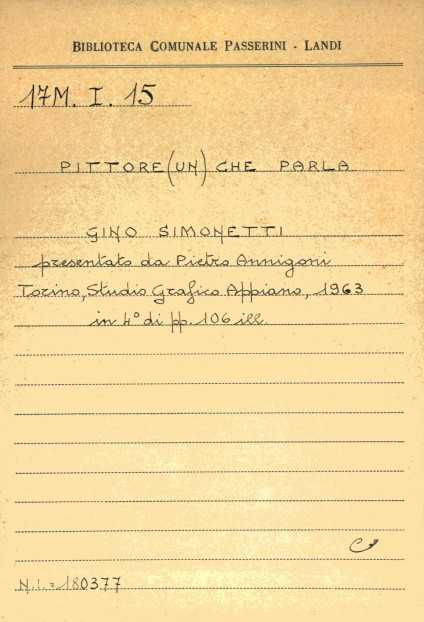 BIBLIOTECA COMUNALE PASSERINI - LANDI
17M. I. 15
PITTORE (UN) CHE PARLA
GINO SIMONETTI
presentato da Pietro Annigoni
Torino, Studio Grafico Appiano, 1963
in 4° di pp. 106 ill.
N.i. = 180377